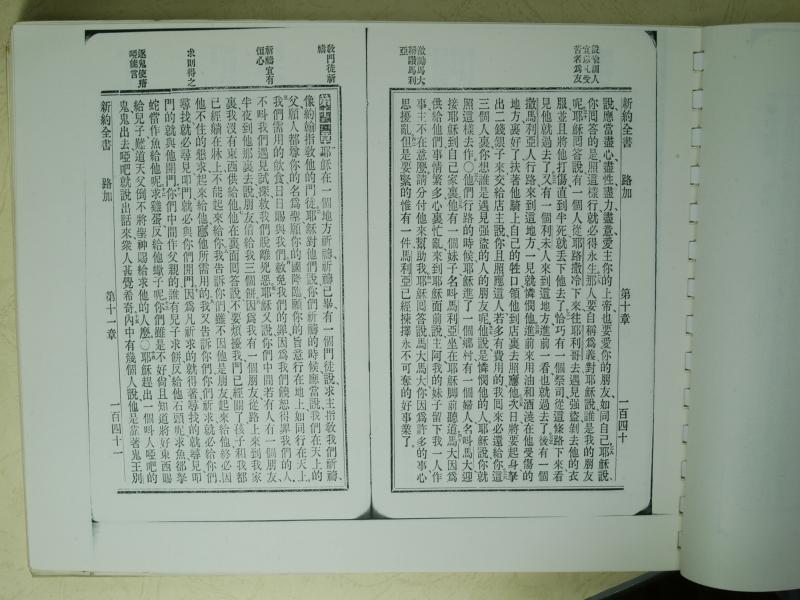 設譬訓人
宜以凡受
苦者為友
激勵馬大
稱讚馬利
亞
新約全書　路加　第十章　一百四十
說應當盡心盡性盡力盡意愛主你的上帝也要愛你的朋友如同自己耶穌說
你回答的是照這樣行就必得永生那人要自稱為義對耶穌說誰是我的朋友
呢耶穌回答說有一個人從耶路撒冷下來往耶利哥去遇見強盜剝去他的衣
服並且將他打傷直到半死就丟下他去了恰巧有一個祭司從這條路下來看
見他就過去了又有一個利未人來到這地方進前一看也就過去了後有一個
撒馬利亞人行路來到這地方一見就憐憫他進前來用油和酒澆在他受傷的
地方裹好了扶著他騎上自己的牲口領他到店裏去照應他次日將要起身拏
出二錢銀子來交給店主說你且照應這人若多有費用的我回來必還給你這
三個人裏你想誰是遇見強盜的人的朋友呢他說是憐憫他的人耶穌說你就
照這樣去作〇他們行路的時候耶穌進了一個鄉村有一個婦人名叫馬大迎
接耶穌到自己家裏他有一個妹子名叫馬利亞坐在耶穌脚前聽道馬大因為
供給他們事情繁多心裏忙亂來到耶穌面前說主阿我的妹子留下我一人作
事主不在意麼請分付他來幫助我耶穌回答說馬大馬大你因為許多的事心
思擾亂但是要緊的惟有一件馬利亞已經揀擇永不可奪的好事業了
教門徒祈
禱
祈禱宜有
恒心
求則得之
逐鬼使瘖
啞能言
第十一章耶穌在一個地方祈禱祈禱已畢有一個門徒說求主指教我們祈禱
像約翰指教他的門徒耶穌對他們說你們祈禱的時候應當說我們在天上的
父願人都尊你的名為聖願你的國降臨願你的旨意行在地上如同行在天上
我們需用的飲食日日賜與我們赦免我們的罪因為我們饒恕得罪我們的人
不叫我們遇見試探救我們脫離兇惡耶穌又說你們中間若有人有一個朋友
半夜到他那裏去說朋友借給我三個餅因為我有一個朋友從路上來到我家
裏我沒有東西供給他他在裏面回答說不要煩擾我門已經關了孩子和我都
已經躺在牀上不能起來給你我告訴你們雖不因他是朋友起來給他終必因
他不住的懇求起來給他應他所需用的我又告訴你們你們祈求就必給你們
尋找就必尋見叩門就必與你們開門因為凡祈求的就得著尋找的就尋見叩
門的就與他開門你們中間作父親的誰有兒子求餅反給他石頭呢求魚卻拏
蛇當作魚給他呢求雞蛋反給他蠍子呢你們雖是不好尚且知道將好東西賜
給兒子難道天父倒不將聖神賜給求他的人麼〇耶穌趕出一個叫人啞吧的
鬼鬼出去啞吧就說出話來眾人甚覺希奇內中有幾個人說他是靠著鬼王別
新約全書　路加　第十一章　一百四十一